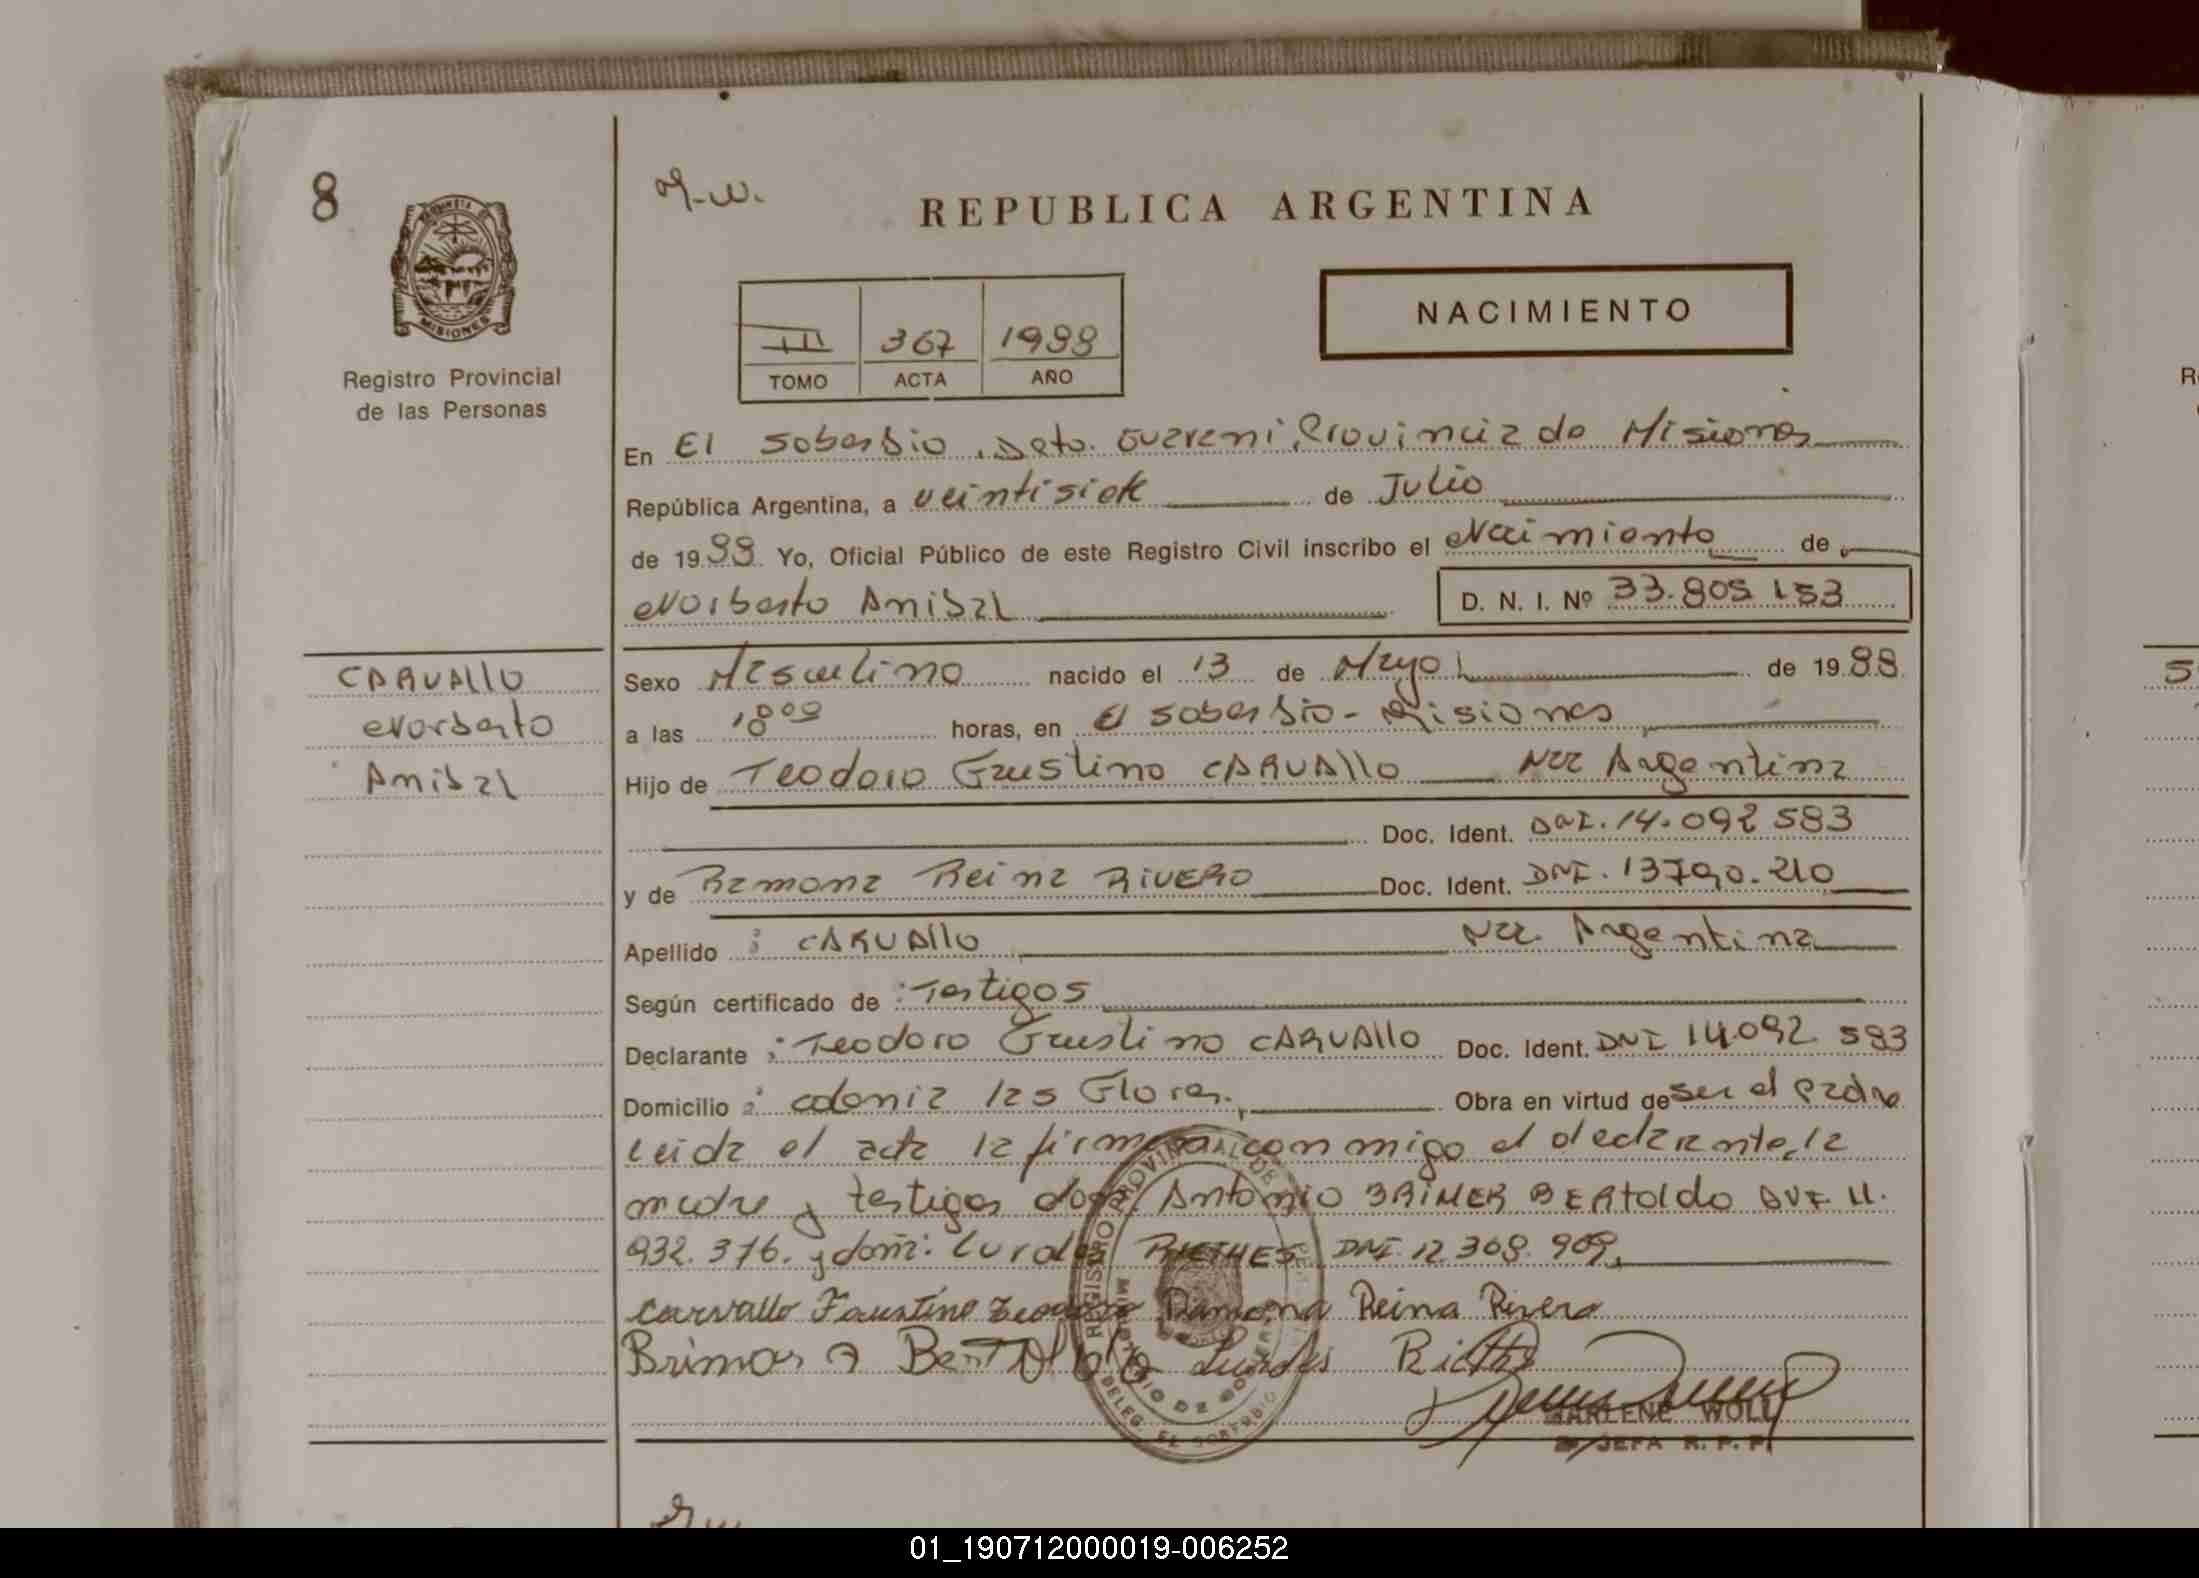 8
M-W.
REPUBLICA ARGENTINA
MISIONES
Registro Provincial
de las Personas
III 367 1988
TOMO ACTA AÑO
NACIMIENTO
En El Soberbio, Dpto. Guarani, Provincia de Misiones
República Argentina, a veintisiete de Julio
de 1988 Yo, Oficial Público de este Registro Civil inscribo el Nacimiento de
Norberto Anibal D. N. I. Nº 33.805 153
CARVAllO
Norberto
Anibal
Sexo Masculino nacido el 13 de Mayo de 1988
a las 18 00 horas, en El Soberbio - Misiones
Hijo de Teodoro Faustino CARVAllO Nac Argentina
Doc. Ident. DNI. 14.092 583
y de Ramona Reina RIVERO Doc. Ident. DNI. 13790.210
Apellido : CARVAllO Nac. Argentina
Según certificado de : Testigos
Declarante : Teodoro Faustino CARVAllO Doc. Ident. DNI 14.092 583
Domicilio : colonia las Flores. Obra en virtud de ser el padre
Leida el acta la firman con migo el declarante, la
madre y testigos don: Antonio BRIMER BERTOLDO DNI. 11.
932.376. y doña: Lurdes RIETHES DNI. 12 368. 909.
Carvallo Faustino Teodoro Ramona Reina Rivero
Lurdes
MARLENE WOLL
JEFA R. P. P.
REGISTRO PROVINCIAL DE
DELEG. EL SOBERBIO
01_190712000019-006252